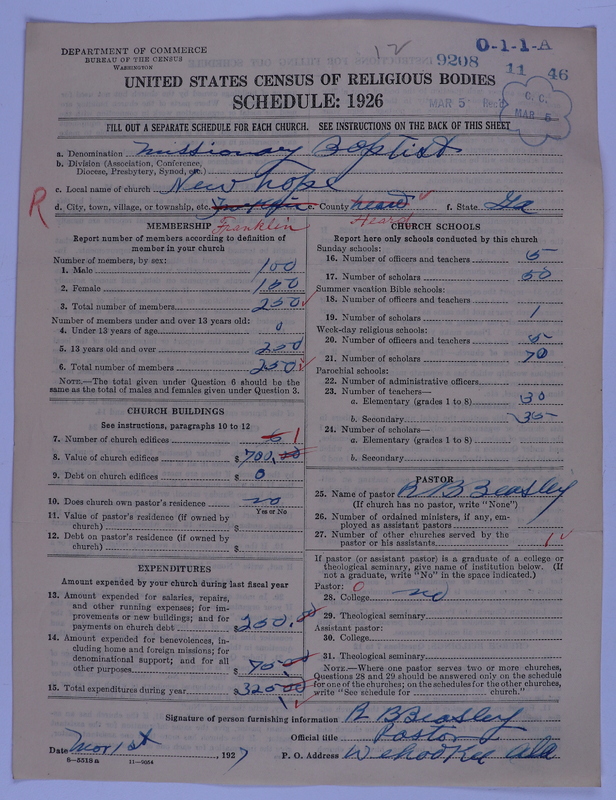 DEPARTMENT OF COMMERCE
BUREAU OF THE CENSUS
WASHINGTON
12
9208
0-1-1-A
11 46
UNITED STATES CENSUS OF RELIGIOUS BODIES
SCHEDULE: 1926
MAR 5 Rec'd
C. C.
MAR 5
FILL OUT A SEPARATE SCHEDULE FOR EACH CHURCH. SEE INSTRUCTIONS ON THE BACK OF THIS SHEET
a. Denomination Missionary Baptist
b. Division (Association, Conference, Diocese, Presbytery, Synod, etc.)
c. Local name of church New hope
R
d. City, town, village, or township, etc. Franklin e. County heard Heard f. State Ga
MEMBERSHIP
Report number of members according to definition of member in your church
Number of members, by sex:
1. Male 100
2. Female 150
3. Total number of members 250
Number of members under and over 13 years old:
4. Under 13 years of age 0
5. 13 years old and over 250
6. Total number of members 250
NOTE.—The total given under Question 6 should be the same as the total of males and females given under Question 3.
CHURCH BUILDINGS
See instructions, paragraphs 10 to 12
7. Number of church edifices 1
8. Value of church edifices $ 700.00
9. Debt on church edifices $ 0
10. Does church own pastor's residence no
Yes or No
11. Value of pastor's residence (if owned by church) $
12. Debt on pastor's residence (if owned by church) $
EXPENDITURES
Amount expended by church during last fiscal year
13. Amount expended for salaries, repairs, and other running expenses; for improvements or new buildings; and for payments on church debt $ 250.00
14. Amount expended for benevolences, including home and foreign missions; for denominational support; and for all other purposes $ 75.00
15. Total expenditures during year $ 325.00
CHURCH SCHOOLS
Report here only schools conducted by this church
Sunday schools:
16. Number of officers and teachers 5
17. Number of scholars 50
Summer vacation Bible schools:
18. Number of officers and teachers
19. Number of scholars 1
Week-day religious schools:
20. Number of officers and teachers 5
21. Number of scholars 70
Parochial schools:
22. Number of administrative officers
23. Number of teachers—
a. Elementary (grades 1 to 8) 30
b. Secondary 35
24. Number of scholars—
a. Elementary (grades 1 to 8)
b. Secondary
PASTOR
25. Name of pastor R B Beasley
(If church has no pastor, write "None")
26. Number of ordained ministers, if any, employed as assistant pastors
27. Number of other churches served by the pastor or his assistants 1
If pastor (or assistant pastor) is a graduate of a college or theological seminary, give name of institution below. (If not a graduate, write "No" in the space indicated.)
Pastor: 0
28. College no
29. Theological seminary
Assistant pastor:
30. College
31. Theological seminary
NOTE.—Where one pastor serves two or more churches, Questions 28 and 29 should be answered only on the schedule for one of the churches; on the schedules for the other churches, write "See schedule for church."
Signature of person furnishing information R B Beasley
Official title Pastor
Date Mar 1st, 1927
P. O. Address Wehadkee Ala
8—5518a 11—9054